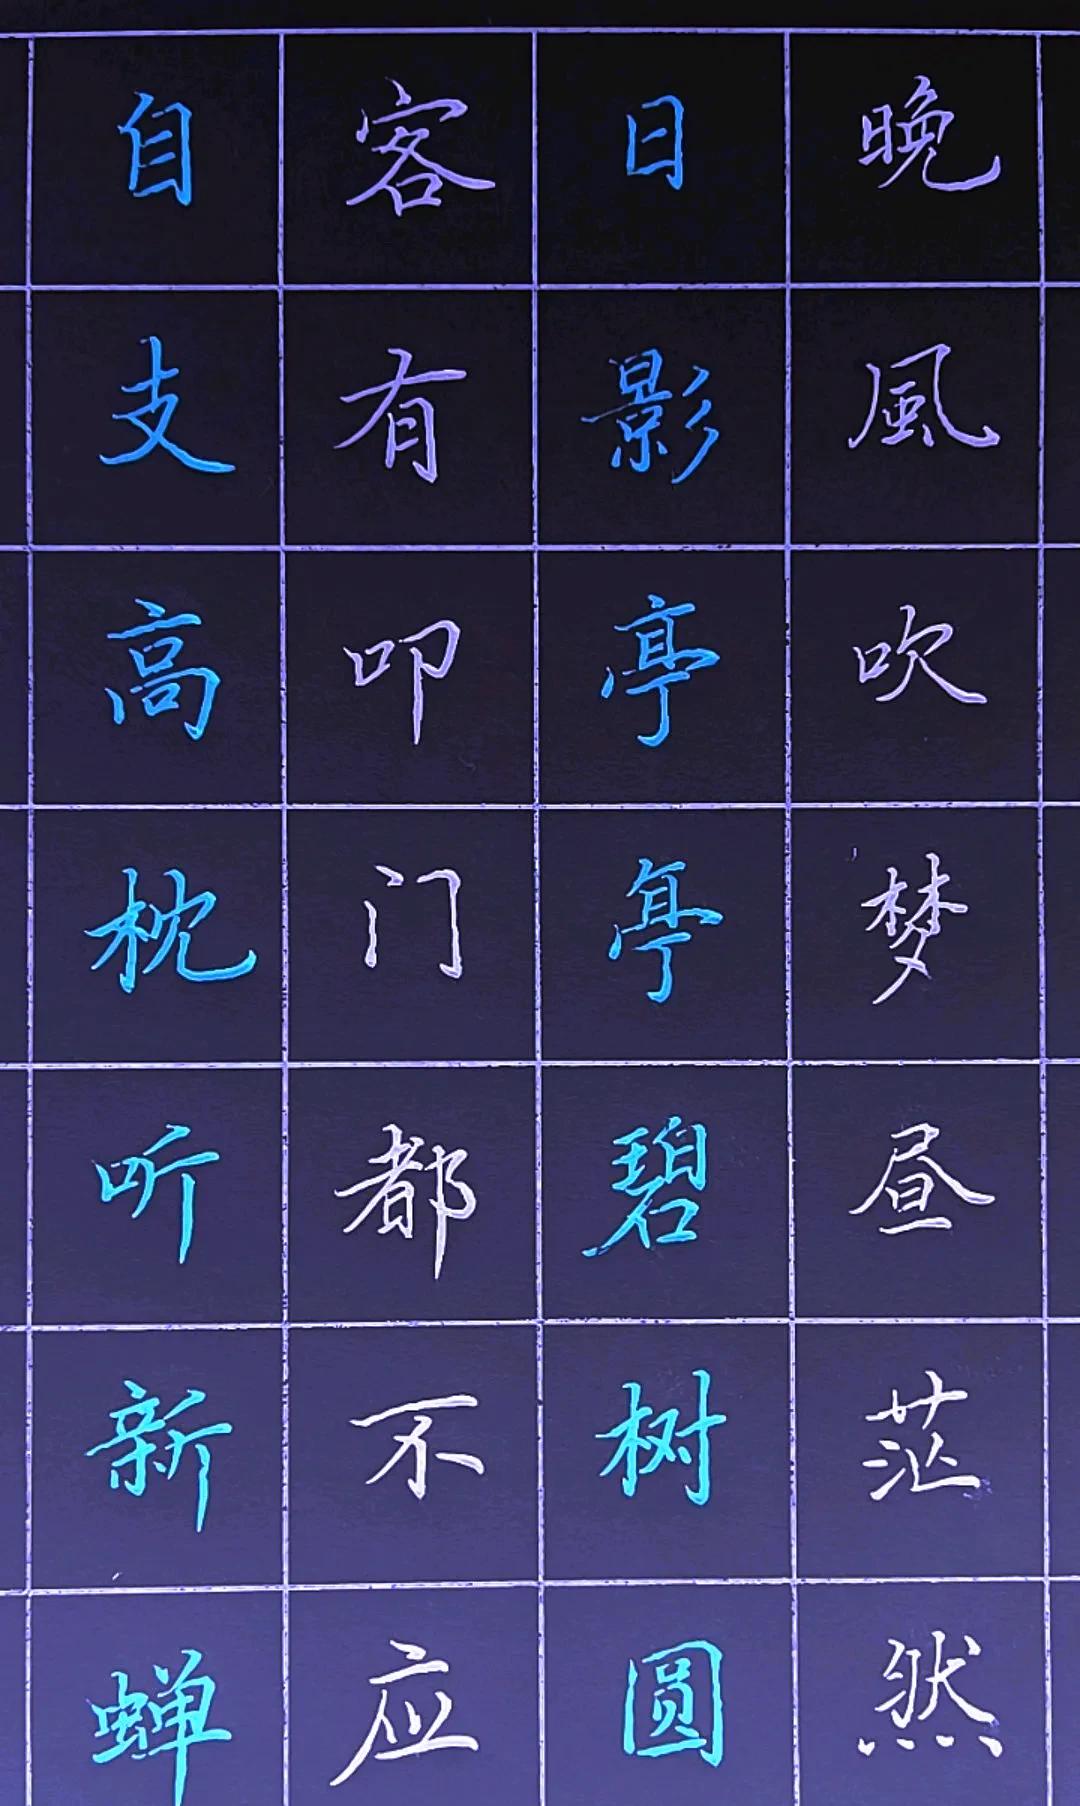 晚風吹梦昼茫然
日影亭亭碧树圆
客有叩门都不应
自支高枕听新蝉